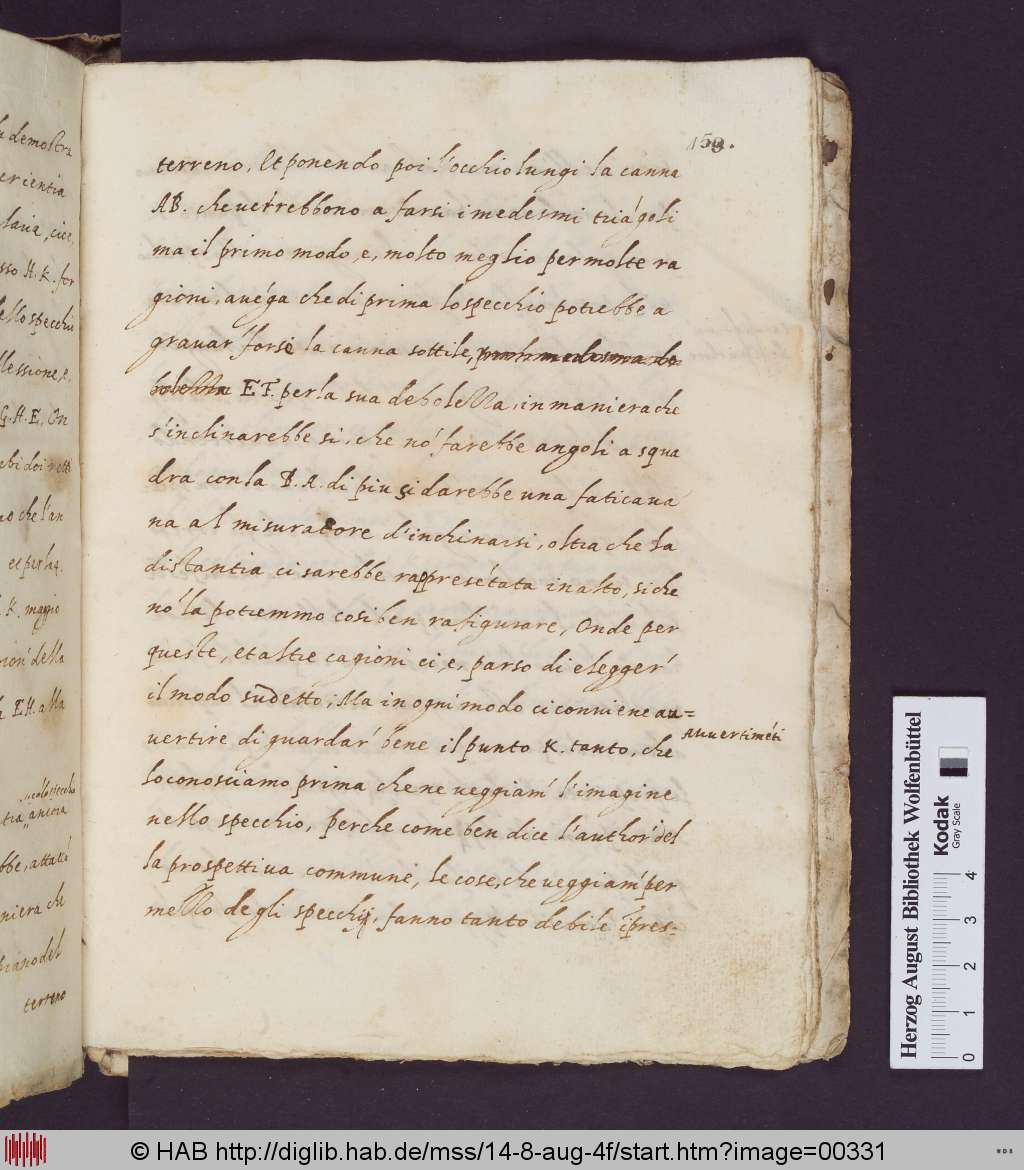 158.
terreno, Et ponendo poi l'occhio lungi la canna
AB. che verrebbono a farsi i medesmi triágoli
ma il primo modo, e, molto meglio per molte ra
gioni, avéga che di prima lo specchio potrebbe a
gravar forse la canna sottile,
EF. per la sua debolezza, in maniera che
s'inclinarebbe si, che nó farebbe angoli a squa
dra con la B.A. di piu si darebbe una fatica va
na al misuratore d'inchinarsi, oltra che la
distantia ci sarebbe rappresétata in alto, si che
nó la potremmo cosi ben rafigurare, Onde per
queste, et altre cagioni ci, e, parso di elegger'
il modo sudetto; Ma in ogni modo ci conviene au=
vertire di guardar' bene il punto K. tanto, che
lo conosciamo prima che ne veggiam' l'imagine
nello specchio, perche come ben dice l'author' del
la prospettiva commune, le cose, che veggiam' per
mezzo de gli specchij, fanno tanto debile ípres=
Avvertiméti
u demostra
erientia
sso H.K. for
ello specchio
flessione, e,
G.H.E, On
ebi doi retti
no che l'an
et per la 4.
K. maggio
della
E.H. alla
ancora
niera che
piano del
terreno
Herzog August Bibliothek Wolfenbüttel
Kodak
Gray Scale
0 1 2 3 4
© HAB http://diglib.hab.de/mss/14-8-aug-4f/start.htm?image=00331